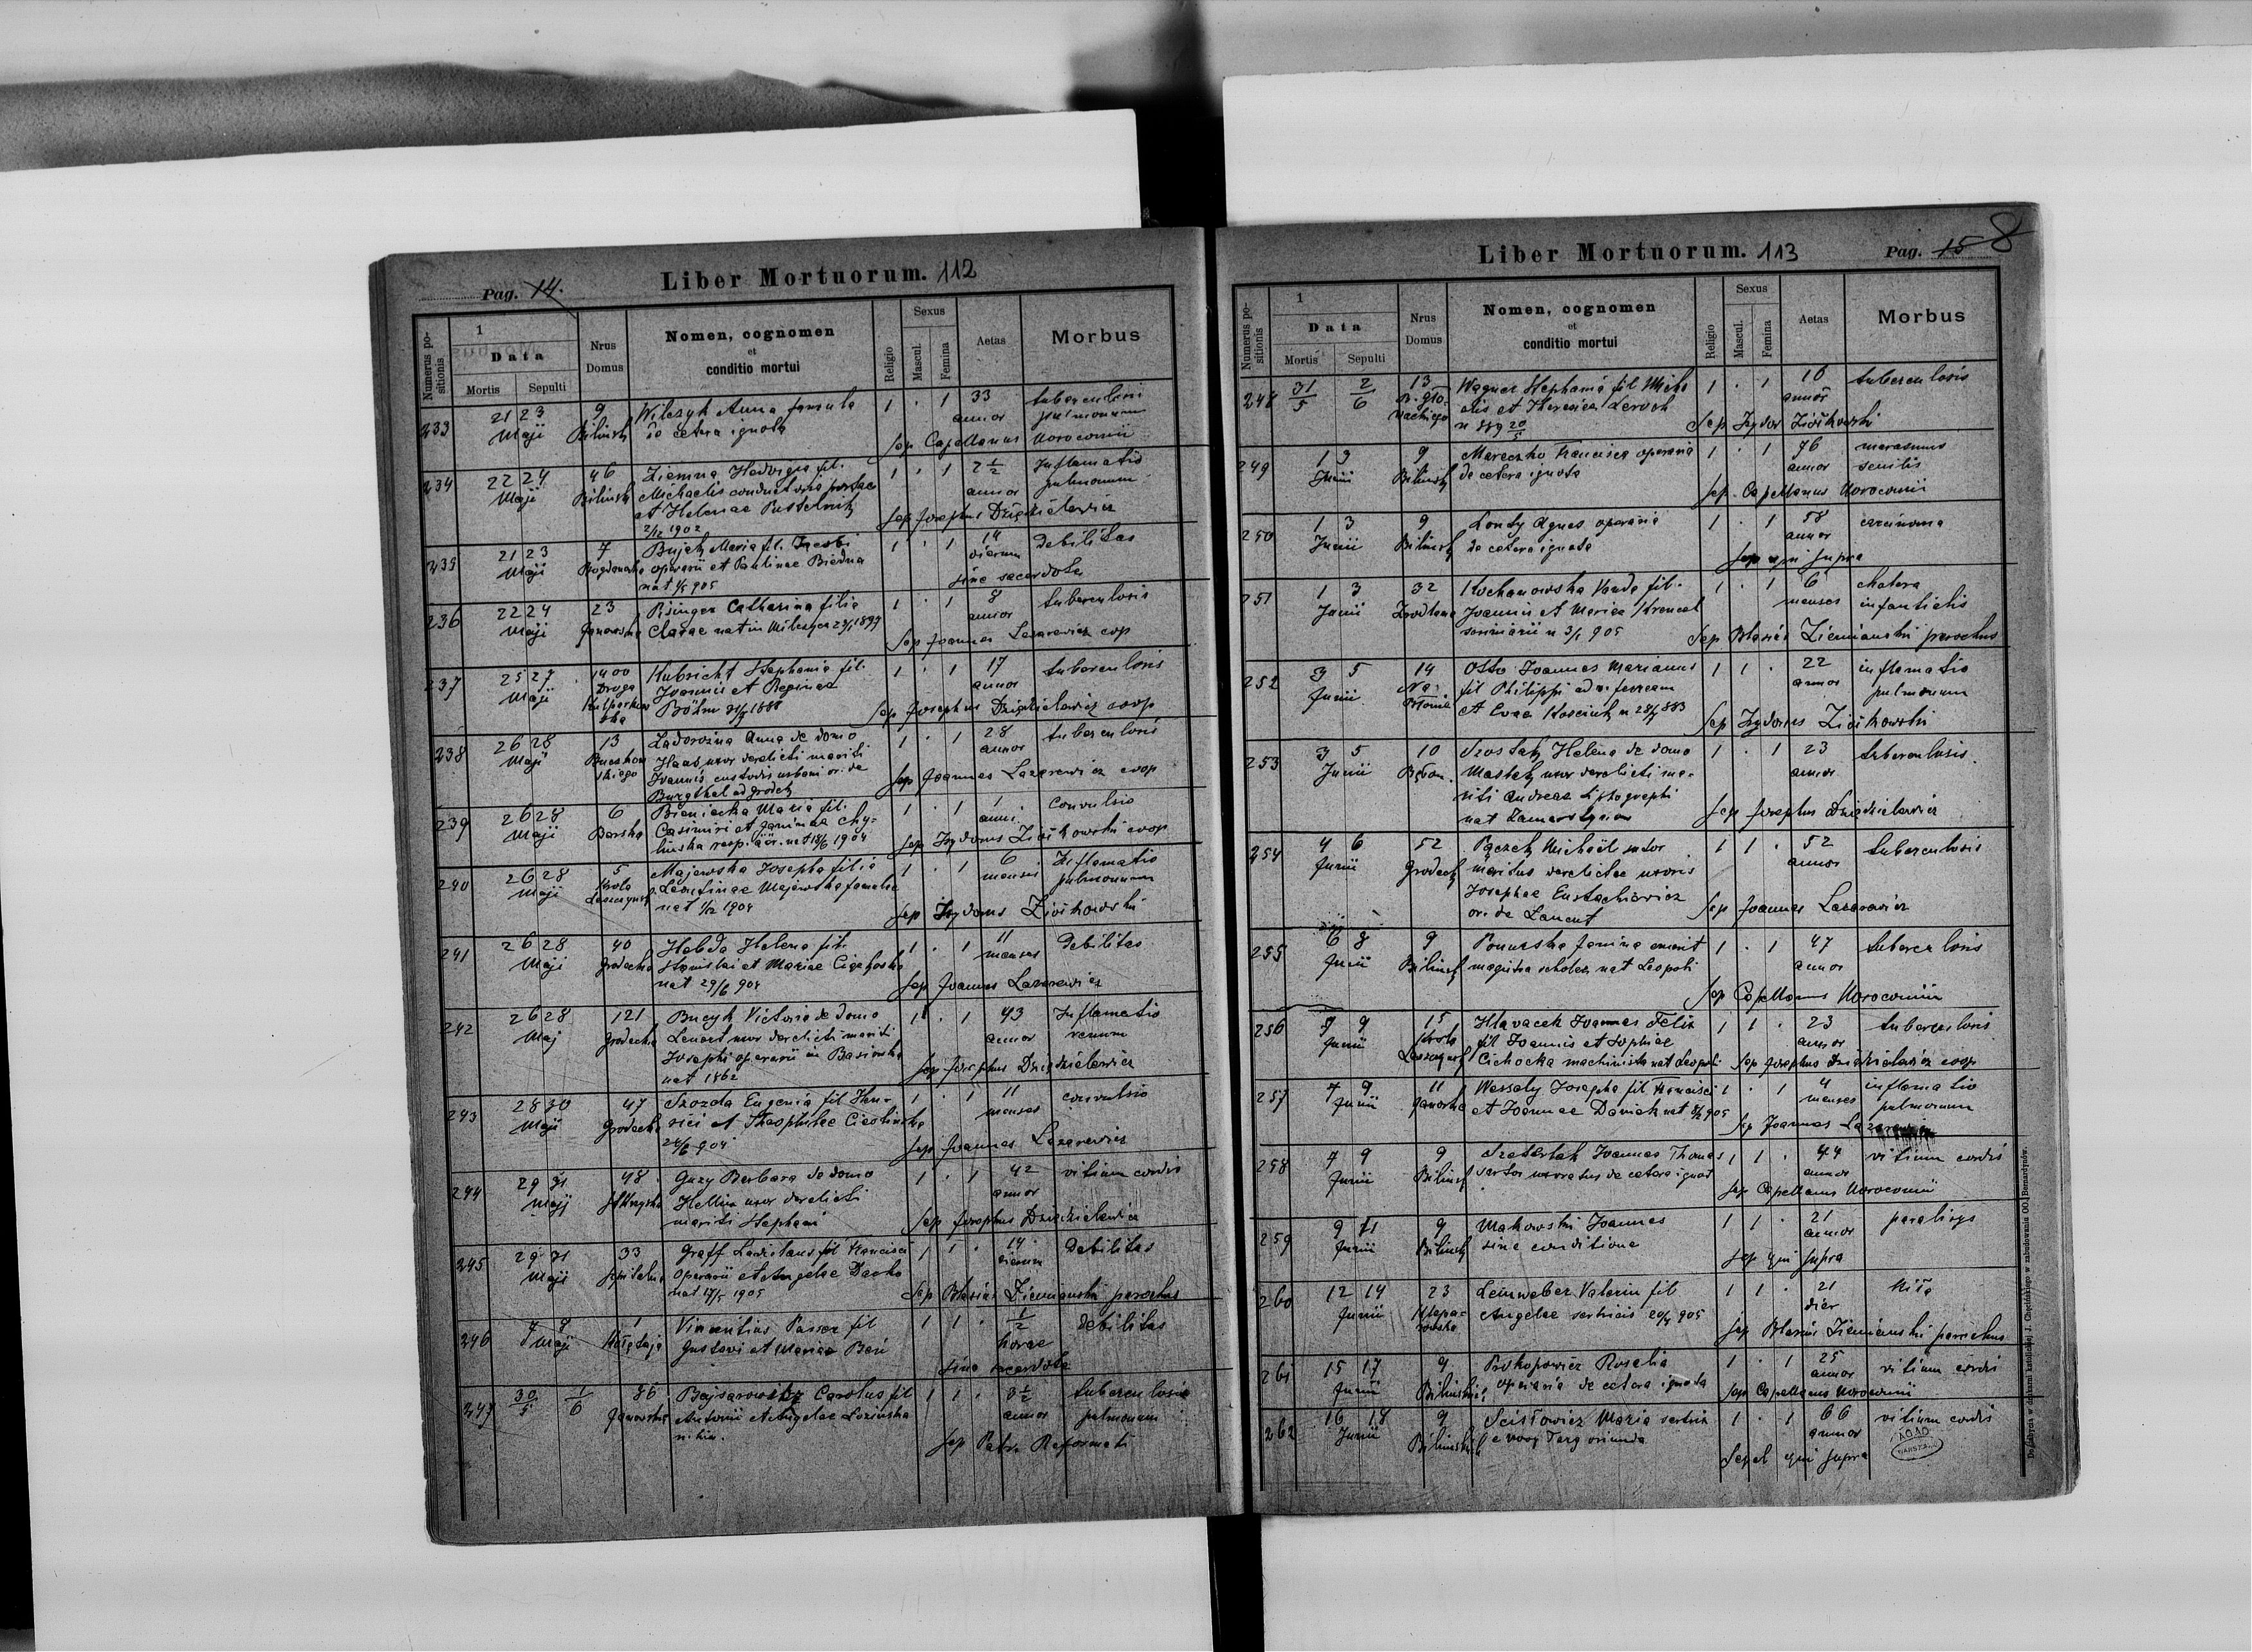 Pag. 14.
Liber Mortuorum. 112
Numerus positionis
1
Data
Mortis
Sepulti
Nrus Domus
Nomen, cognomen
et
conditio mortui
Religio
Sexus
Mascul.
Femina
Aetas
Morbus
233 21 23 9 Wilczyk Anna famula 1 · 1 33 tuberculosis
Maji Bilinsk de cetera ignota annor pulmonum
Sep Capellanus Norocomii
234 22 24 46 Ziemna Hedvigis fil. 1 · 1 2 1/2 Inflamatio
Maji Bilinsk Michaelis conductoris annor pulmonum
et Helenae Pustelnik Sep Josephus Dziędzielewicz
2/12 1902
235 21 23 7 Bujak Maria fil. Jacobi 1 · 1 14 Debilitas
Maji Bogdanowka operarii et Paulinae Biedna dierum
nat 905 sine sacerdote
236 22 24 23 Catharina filia 1 · 1 8 tuberculosis
Maji Janowska Clarae nat in 1897 annor
Sep Joannes Lazarewicz cop
237 25 27 1400 Kubricht Stephania fil. 1 · 1 17 tuberculosis
Maji Droga Joannis et Reginae annor
Kulparkowska Böhm 1888 Sep Josephus Dziędzielewicz coop
238 26 28 13 Anna de domo 1 · 1 28 tuberculosis
Maji Haas uxor derelicti mariti annor
Joannis custodis urbani or. de Sep Joannes Lazarewicz coop
Burgthal ad Grodek
239 26 28 6 Bieniecka Maria fil. 1 · 1 1 Convulsio
Maji Barska Casimiri et Janinae Chy- anni
linska nat 18/6 1904 Sep Izydorus Ziółkowski coop
240 26 28 5 Majewska Josepha filia 1 · 1 6 Inflamatio
Maji Króla Leontinae Majewska famulae menses pulmonum
Leszczynsk nat 1/12 1904 Sep Izydorus Ziółkowski
241 26 28 40 Halda Helena fil. 1 · 1 11 Debilitas
Maji Grodecka Stanislai et Mariae menses
nat 29/6 904 Sep Joannes Lazarewicz
242 26 28 121 Bucyk Victoria de domo 1 · 1 43 Inflamatio
Maj Grodecka Lenart uxor derelicti mariti annor renum
Josephi operarii in Sep Josephus Dziędzielewicz
nat 1862
243 28 30 47 Szozda Eugenia fil Hen- 1 · 1 11 convulsio
Maji Grodecka rici et Theophilae Cieslinska menses
24/6 904 Sep Joannes Lazarewicz
244 29 31 48 Guzy Barbara de domo 1 · 1 42 vitium cordis
Maji uxor derelicti annor
mariti Stephani Sep Josephus Dziędzielewicz
245 29 31 33 Graff Ladislaus fil Francisci 1 1 · 14 Debilitas
Maji Szpitalna operarii et Angelae dierum
nat 17/5 1905 Sep Blasius Ziemianski parochus
246 7 8 1 Vincentius Passer fil 1 1 · 1/2 debilitas
Maji Kołłątaja Gustavi et Mariae horae
sine sacerdote
247 30/5 1/6 86 Carolus fil 1 1 · 3 1/2 tuberculosis
Janowska Antonii et Angelae Lozinska annor pulmonum
Sep Patr. Reformati
Liber Mortuorum. 113
Pag. 15 8
Numerus positionis
1
Data
Mortis
Sepulti
Nrus Domus
Nomen, cognomen
et
conditio mortui
Religio
Sexus
Mascul.
Femina
Aetas
Morbus
248 31/5 2/6 13 Wagner Stephania fil Micha 1 · 1 16 tuberculosis
elis et Theresiae annor
n 889 20/5 Sep Izydor Ziółkowski
249 1 3 9 Mareczko Francisca operaria 1 · 1 76 marasmus
Junii Bilinsk de cetera ignota annor senilis
Sep. Capellanus Norocomii
250 1 3 9 Agnes operaria 1 · 1 58 carcinoma
Junii Bilinsk de cetera ignota annor
Sep qui supra
251 1 3 32 Kochanowska Vanda fil. 1 · 1 6 cholera
Junii Zrodlana Joannis et Mariae menses infantilis
n 3/1 905 Sep Blasius Ziemianski parochus
252 3 5 14 Otto Joannes Marianus 1 1 · 22 inflamatio
Junii Na Błonie fil Philippi ad v. ferream annor pulmonum
et Evae n 883 Sep Izydorus Ziółkowski
253 3 5 10 Szostak Helena de domo 1 · 1 23 tuberculosis
Junii Bębon. uxor derelicti ma- annor
riti Andreae Sep Josephus Dziędzielewicz
nat
254 4 6 52 Pączek Michaël sutor 1 1 · 52 tuberculosis
Junii Grodeck maritus derelictae uxoris annor
Josephae Eustachiewicz
or. de Lancut Sep Joannes Lazarewicz
255 6 8 9 Janina emerit 1 · 1 47 tuberculosis
Junii Bilinsk magistra scholae nat Leopoli annor
Sep Capellanus Norocomii
256 7 9 15 Hlavacek Joannes Felix 1 1 · 23 tuberculosis
Junii Króla fil Joannis et Sophiae annor
Leszczynsk Cichocka machinista nat Leopoli Sep Josephus Dziędzielewicz coop
257 7 9 11 Wessely Josepha fil Francisci 1 · 1 4 inflamatio
Junii Janowska et Joannae Daniek nat 905 menses pulmonum
Sep Joannes
258 7 9 9 Joannes Thomas 1 1 · 44 vitium cordis
Junii Bilinsk sartor uxoratus de cetera ignot annor
Sep Capellanus Norocomii
259 9 11 9 Makowski Joannes 1 1 · 21 paralisys
Junii Bilinsk sine conditione annor
Sep qui supra
260 12 14 23 Leinweber Valerin fil 1 1 · 21
Junii Angelae sertricis 905 dier
Sep Blasius Ziemianski parochus
261 15 17 9 Prokopowicz Rosalia 1 · 1 25 vitium cordis
Junii Bilinskiego operaria de cetera ignota annor
Sep Capellanus Norocomii
262 16 18 9 Scisłowicz Maria sertrix 1 · 1 66 vitium cordis
Junii Bilinskieg e Nowy Targ oriunda annor
Sepel qui supra
AGAD
WARSZAWA
Do nabycia w drukarni katolickiej J. Chęcińskiego w zabudowaniu OO. Bernardynów.